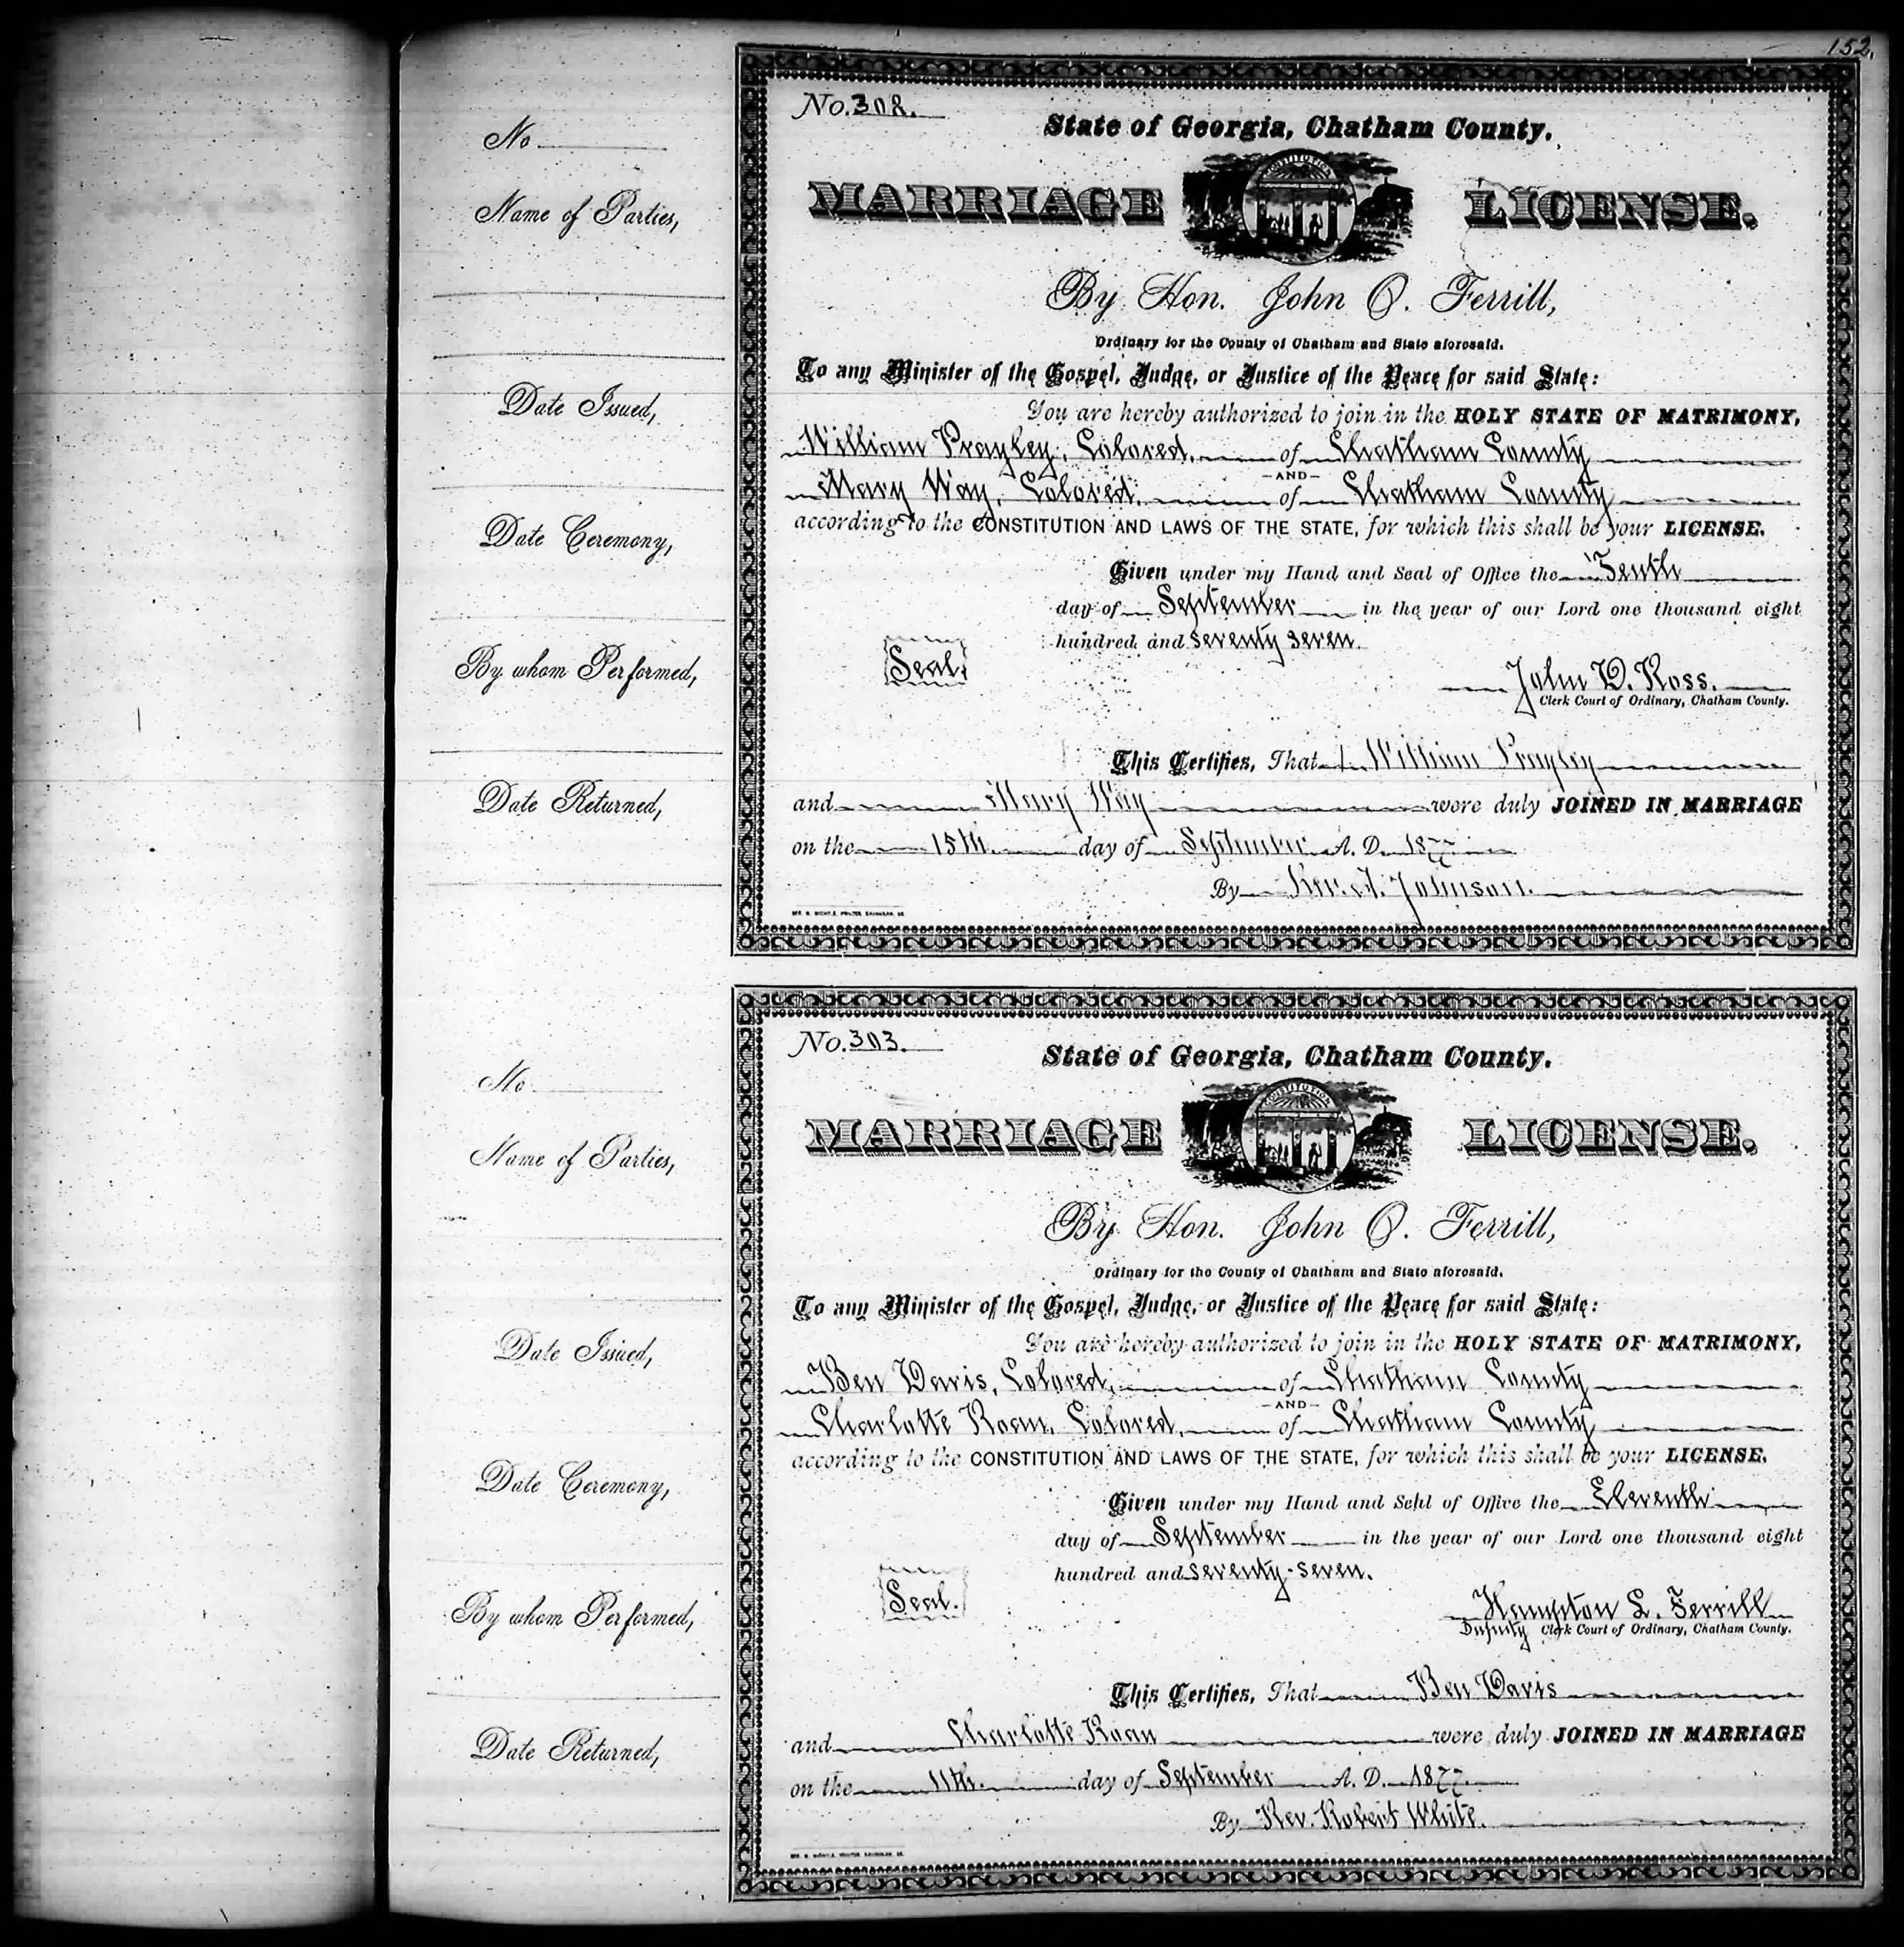 152.
No.
Name of Parties,
Date Issued,
Date Ceremony,
By whom Performed,
Date Returned,
No. 308.
State of Georgia, Chatham County.
MARRIAGE LICENSE.
CONSTITUTION
By Hon. John O. Ferrill,
Ordinary for the County of Chatham and State aforesaid.
To any Minister of the Gospel, Judge, or Justice of the Peace for said State:
You are hereby authorized to join in the HOLY STATE OF MATRIMONY,
William Prayley, Colored, of Chatham County
AND
Mary Way, Colored, of Chatham County
according to the CONSTITUTION AND LAWS OF THE STATE, for which this shall be your LICENSE.
Given under my Hand and Seal of Office the Tenth
day of September in the year of our Lord one thousand eight
hundred and seventy seven.
Seal.
John D. Ross.
Clerk Court of Ordinary, Chatham County.
This Certifies, That William Prayley
and Mary Way were duly JOINED IN MARRIAGE
on the 15th day of September A. D. 1877
By Rev. A. Johnson.
No.
Name of Parties,
Date Issued,
Date Ceremony,
By whom Performed,
Date Returned,
No. 303.
State of Georgia, Chatham County.
MARRIAGE LICENSE.
CONSTITUTION
By Hon. John O. Ferrill,
Ordinary for the County of Chatham and State aforesaid.
To any Minister of the Gospel, Judge, or Justice of the Peace for said State:
You are hereby authorized to join in the HOLY STATE OF MATRIMONY,
Ben Davis, Colored, of Chatham County
AND
Charlotte Roan, Colored, of Chatham County
according to the CONSTITUTION AND LAWS OF THE STATE, for which this shall be your LICENSE.
Given under my Hand and Seal of Office the Eleventh
day of September in the year of our Lord one thousand eight
hundred and seventy-seven.
Seal.
Hampton L. Ferrill
Deputy Clerk Court of Ordinary, Chatham County.
This Certifies, That Ben Davis
and Charlotte Roan were duly JOINED IN MARRIAGE
on the 11th. day of September A. D. 1877.
By Rev. Robert White.